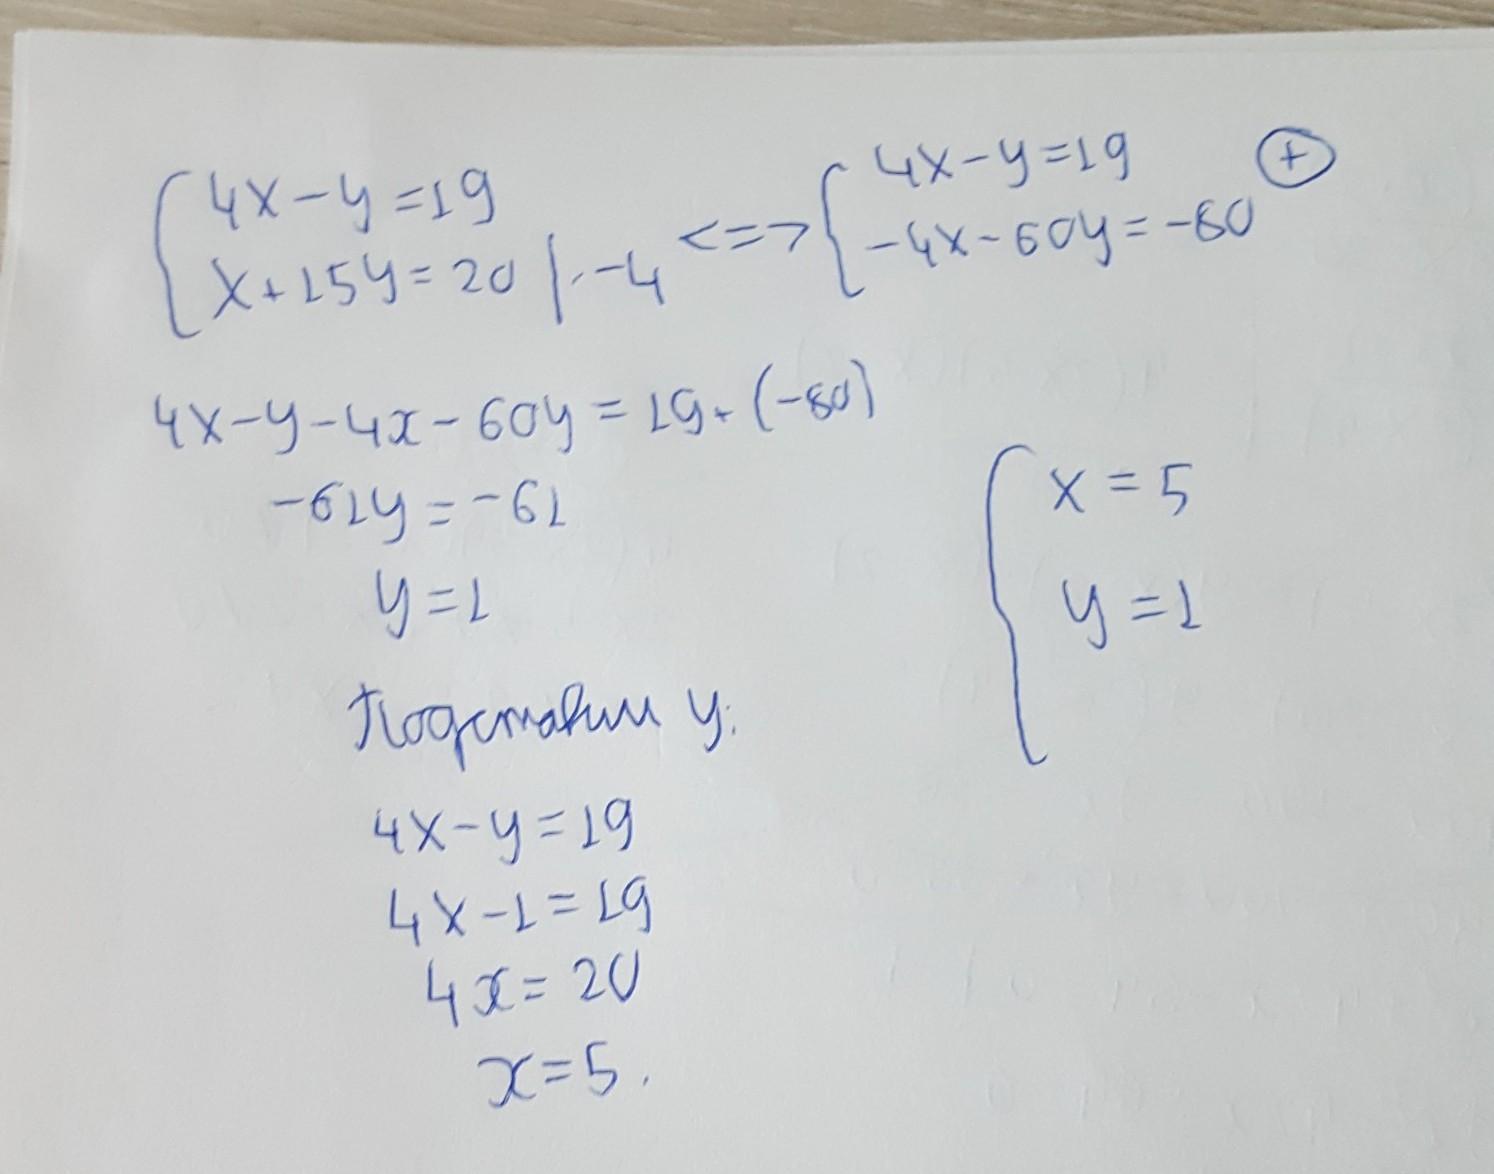 4x-y=19
x+15y=20 |·-4
<=>
4x-y=19
-4x-60y=-80
+
4x-y-4x-60y=19+(-80)
-61y=-61
y=1
Подставим y:
4x-y=19
4x-1=19
4x=20
x=5.
x=5
y=1